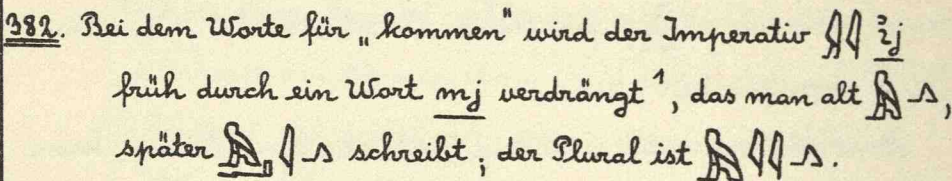 382. Bei dem Worte für „kommen" wird der Imperativ 𓇋𓇋 ꞽj
früh durch ein Wort mj verdrängt ¹, das man alt 𓂻,
später 𓇋𓂻 schreibt; der Plural ist 𓇋𓇋𓂻.